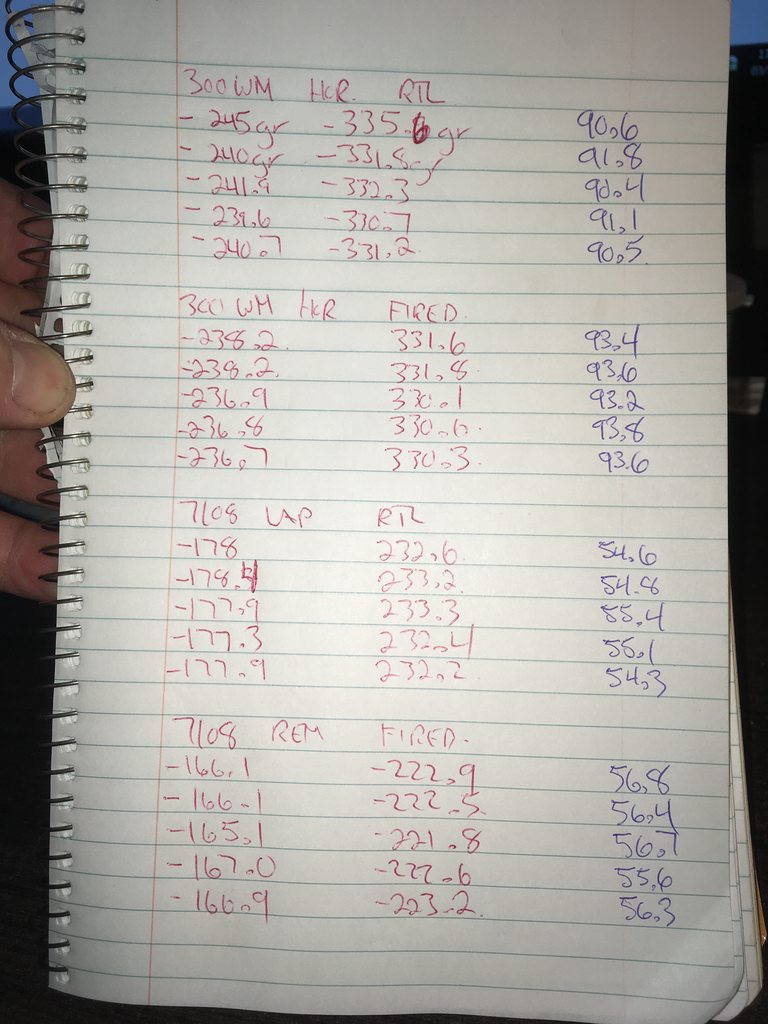 300WM HCR. RTL
- 245gr - 335.6 gr 90.6
- 240gr - 331.8 gr 91.8
- 241.9 - 332.3 90.4
- 239.6 - 330.7 91.1
- 240.7 - 331.2. 90.5.
300 WM HCR FIRED.
- 238.2. 331.6 93.4
- 238.2. 331.8. 93.6
- 236.9 330.1 93.2
- 236.8 330.6. 93.8
- 236.7 330.3. 93.6
7/08 LAP RTL
- 178 232.6. 54.6
- 178.4 233.2. 54.8
- 177.9 233.3 55.4
- 177.3 232.4 55.1
- 177.9 232.2 54.3
7/08 REM FIRED.
- 166.1 - 222.9 56.8
- 166.1 - 222.5 56.4
- 165.1 - 221.8 56.7
- 167.0 - 222.6 55.6
- 166.9 - 223.2. 56.3